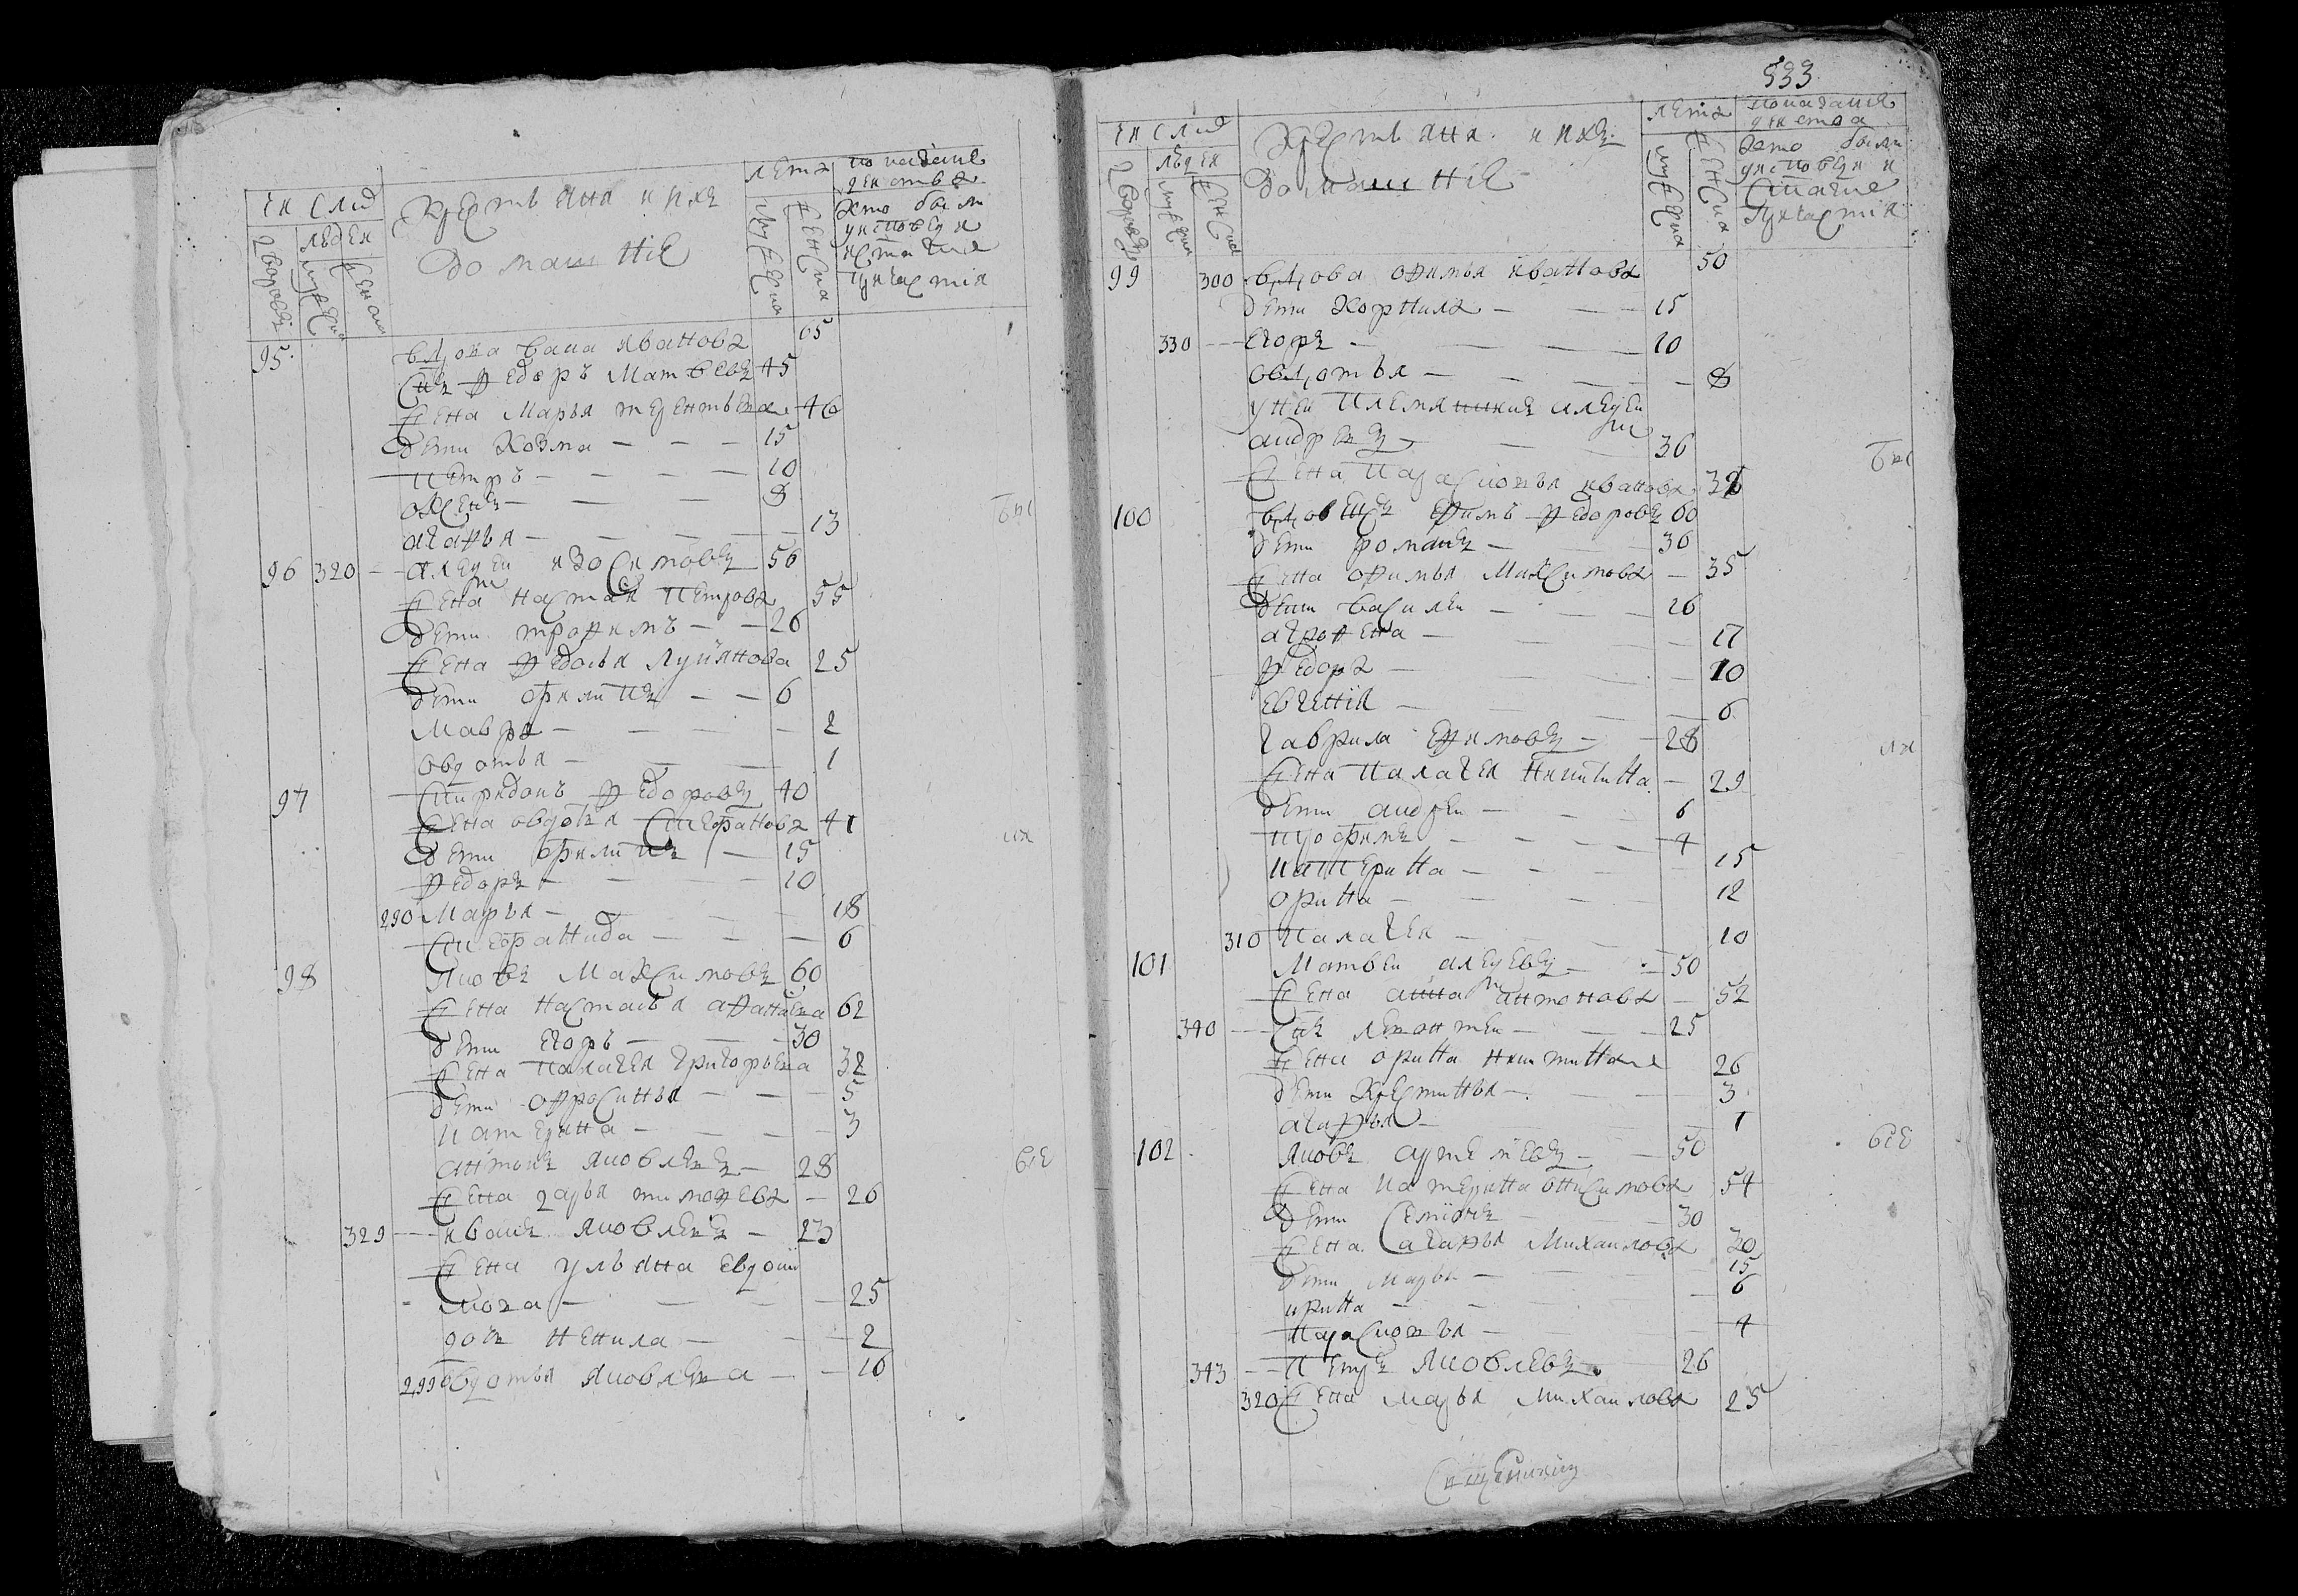 числа
дворовъ
людей
мужеска
женска
крестьяна и ихъ
домашние
лета
мужеска
женска
показание
действа
кто были
у исповеди и
святаго
причастия
95 вдова Иванова 65
сынъ Федоръ Матвеевъ 45
жена Марья Терентьевна 46
дети Козма 15
Петръ 10
8
Агафья 13
96 320 Алексеи Изосимовъ 56
жена Настасья Петрова 55
дети Трофимъ 26
жена Федосья Лукиянова 25
дети Филипъ 6
Мавра 2
Овдотья 1
97 Спиридонъ Федоровъ 40
жена Овдотья Степанова 41
дети Филипъ 15
Федоръ 10
290 Марья 18
Степанида 6
98 Яковъ Максимовъ 60
жена Настасья Афанасьевна 62
дети Егоръ 30
жена Палагея Григорьевна 32
дети Офросинья 5
Катерина 3
Антонъ Яковлевъ 28
жена Дарья Тимофеева 26
329 Иванъ Яковлевъ 23
жена Ульяна Евдоки
мова 25
дочь Ненила 2
299 Овдотья Яковлевна 16
533
числа
дворовъ
людей
мужеска
женска
крестьяна и ихъ
домашние
лета
мужеска
женска
показание
действа
кто были
у исповеди и
святаго
причастия
99 300 вдова Офимья Иванова 50
дети Корнила 15
330 Егоръ 10
Овдотья 8
у неи племянникъ Алексеи
Андреевъ 36
жена Парасковья Иванова
100 вдовецъ Ефимъ Федоровъ 60
дети Романъ 36
жена Офимья Максимова 35
дети Василеи 16
Агрофена 17
Федора 10
Евгения 6
Гаврила Ефимовъ 28
жена Палагея Никитина 29
дети Андреи 6
Трофимъ 4
Катерина 15
Орина 12
310 Палагея 10
101 Матвеи Алексеевъ 50
жена Анна Антонова 52
340 сынъ Леонтеи 25
жена Орина Никитина 26
дети Крестинья 3
Агафья 1
102 Яковъ 50
жена Катерина Онисимова 54
дети Семионъ 30
жена Агафья Михаилова 30
дети Марья 15
Ирина 6
Парасковья 4
343 Петръ Яковлевъ 26
320 жена Марья Михаилова 25
Священникъ